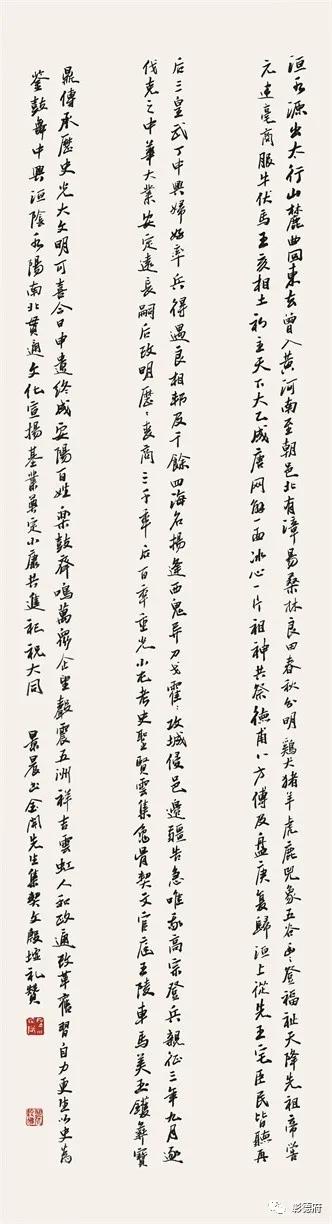 洹水源出太行山麓曲回東去曾入黄河南至朝邑北有漳昜桑林良田春秋分明鷄犬猪羊虎鹿兕象五谷豐登福祉天降先祖帝喾
元達亳商服牛伏馬王亥相土初主天下大乙成唐网解一面冰心一片祖神共祭德甫八方傳及盘庚复歸洹上從先王宅臣民皆聽再
后三皇武丁中興婦好率兵得遇良相邦及千餘四海名揚逢西鬼异刀戈霍霍攻城侵邑邊疆告急唯我高宗登兵親征三年九月逐
伐克之中華大業安定遠長嗣后政明歷歷衰商三千年后百年重光小屯考史聖賢雲集龜骨契文宫庭王陵車馬美玉鑊彝寶
鼎傳承歷史光大文明可喜今日申遺終成安陽百姓樂鼓齊鳴萬眾企望聲震五洲祥吉雲虹人和政通改革舊習自力更生以史為
鉴鼓舞中興洹陰水陽南北貫通文化宣揚基業奠定小康共進祀祝大同
景晨書金開先生集契文殷墟礼赞
彰德府